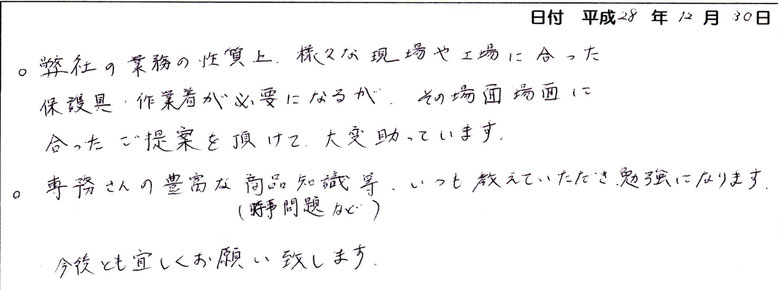 日付 平成28年12月30日
○ 弊社の業務の性質上、様々な現場や工場に合った
保護具・作業着が必要になるが、その場面場面に
合ったご提案を頂けて、大変助っています。
○ 専務さんの豊富な商品知識等、いつも教えていただき、勉強になります。
(時事問題など)
今後とも宜しくお願い致します。